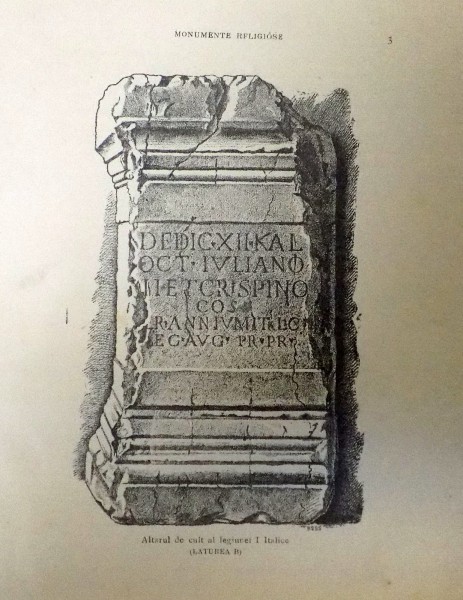 MONUMENTE RELIGIÓSE
3
DEDIC·XII·KAL
OCT·IVLIANO
II·ET·CRISPINO
COS
PR·PR·
Altarul de cult al legiunei I Italice
(LATUREA B)